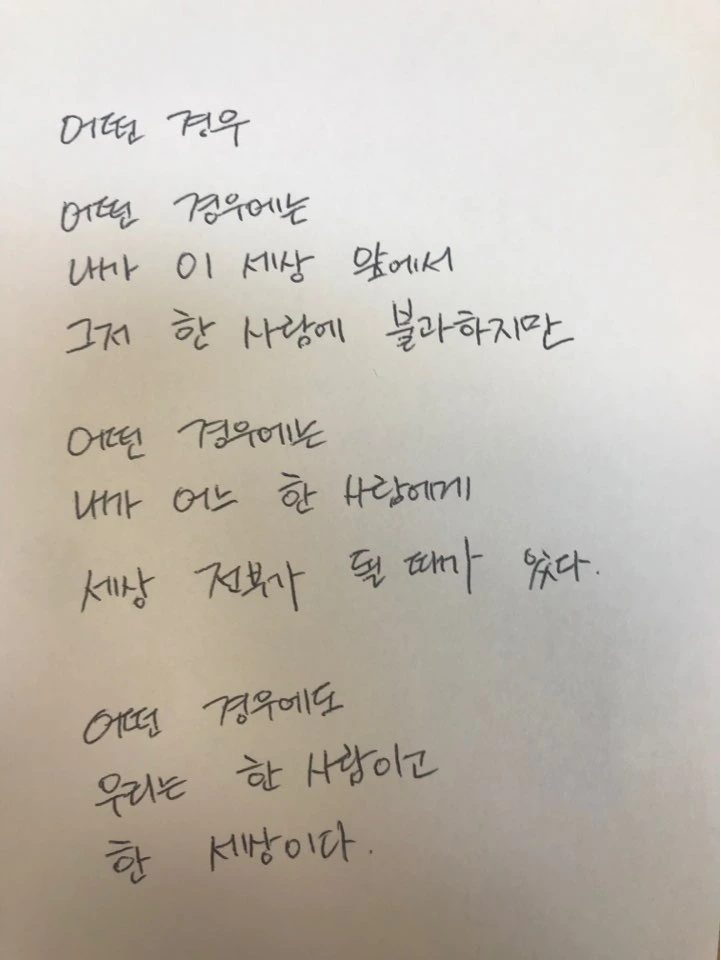 어떤 경우
어떤 경우에는
내가 이 세상 앞에서
그저 한 사람에 불과하지만
어떤 경우에는
내가 어느 한 사람에게
세상 전부가 될 때가 있다.
어떤 경우에도
우리는 한 사람이고
한 세상이다.